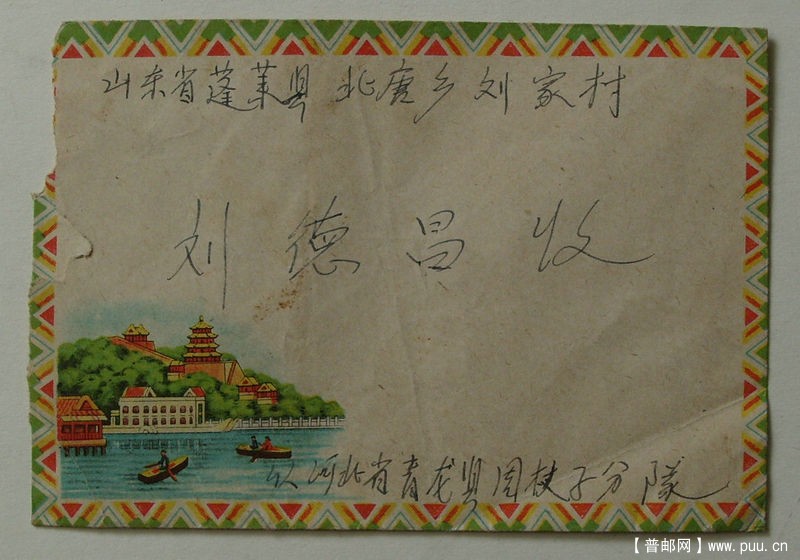 山东省蓬莱县 北唐乡 刘家村
刘德昌收
从河北省青龙县周杖子分队
【普邮网】www.puu.cn